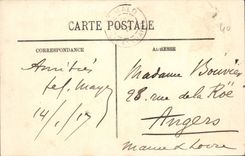 CARTE POSTALE
CORRESPONDANCE
ADRESSE
Amitiés
14/1/17
Madame Bouvier
28 rue de la Röe
Angers
Maine & Loire